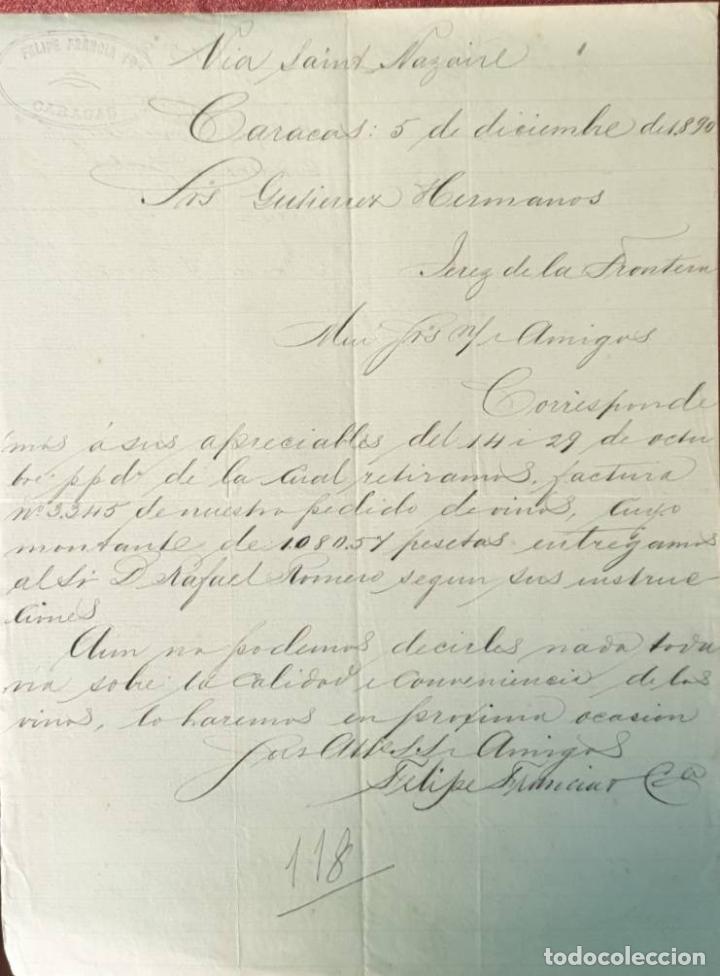 FELIPE FRANCIA
CARACAS
Via Saint Nazaire
Caracas: 5 de diciembre de 1890
Srs Gutierrez Hermanos
Jerez de la Frontera
Mui Srs n/ i Amigos
Corresponde
mos á sus apreciables del 14 i 29 de octu
bre ppdo de la cual retiramos, factura
nº 3.345 de nuestro pedido de vinos, cuyo
montante de 1080.57 pesetas entregamos
al Sr D Rafael Romero segun sus instruc
ciones
Aun no podemos decirles nada toda
via sobre la calidad e conveniencia de los
vinos, lo haremos en proxima ocasion
Sus Atts S.S. i Amigos
Felipe Francia & Ca
118
todocoleccion